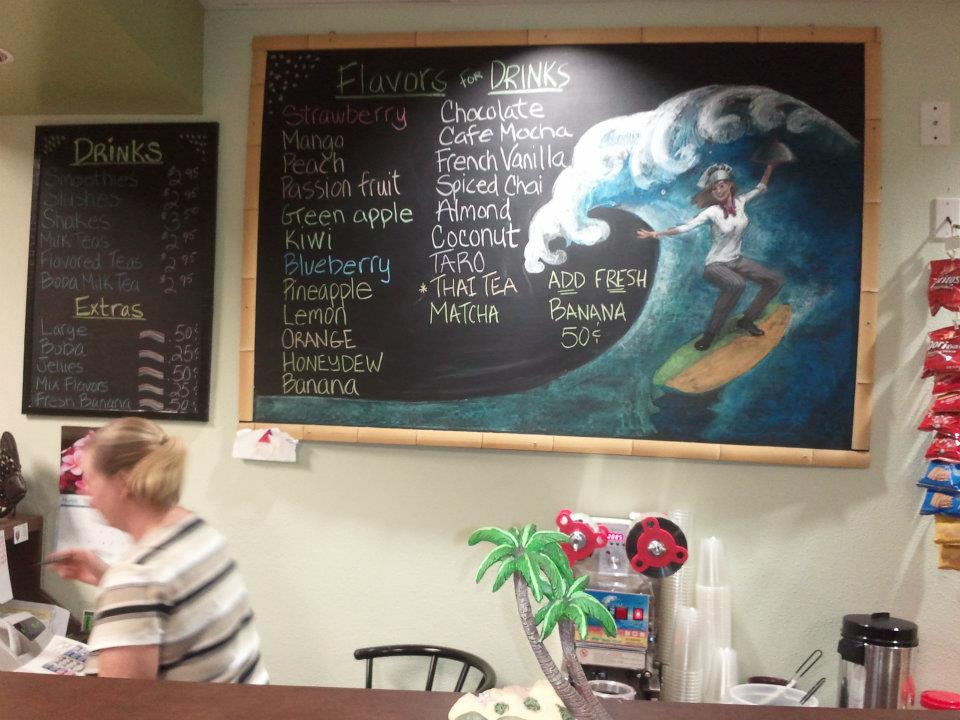 DRINKS
Smoothies $2.95
Slushies
Shakes
Milk Teas $2.95
Flavored Teas $2.95
Boba Milk Tea $2.95
Extras
Large 50¢
Boba 25¢
Jellies 50¢
Mix Flavors 25¢
Fresh Banana 50¢
Flavors FOR DRINKS
Strawberry
Mango
Peach
Passion fruit
Green apple
Kiwi
Blueberry
Pineapple
Lemon
ORANGE
HONEYDEW
Banana
Chocolate
Cafe Mocha
French Vanilla
Spiced Chai
Almond
Coconut
TARO
*THAI TEA
MATCHA
ADD FRESH
BANANA
50¢